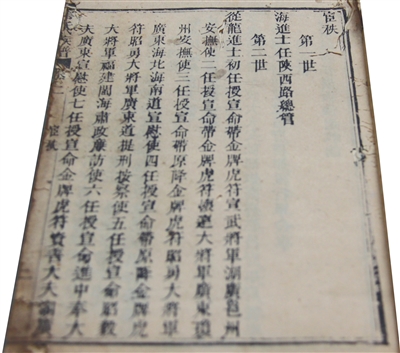 宦秩
第一世
海進士任陝西路總管
第二世
從龍進士初任授宣命帶金牌虎符宣武將軍湖廣邕州
安撫使二任授宣命帶金牌虎符懷遠大將軍廣東
州安撫使三任授宣命帶原降金牌虎符昭勇大將軍
廣東海北海南道宣慰使四任授宣命帶原降金牌虎
符昭勇大將軍廣東道提刑按察使五任授宣命昭毅
大將軍福建閩海肅政廉訪使六任授宣命進中奉大
夫廣東宣慰使七任授宣命金牌虎符資善大夫湖廣
宦秩